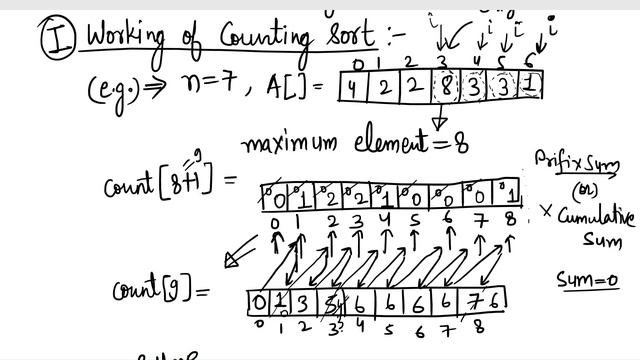 I Working of Counting Sort :-
i i i i
0 1 2 3 4 5 6
(e.g.) ⇒ n=7, A[]= 4 2 2 8 3 3 1
maximum element = 8
9
count[8+1] = 0 1 2 2 1 0 0 0 1
0 1 2 3 4 5 6 7 8
Prifix Sum
(or)
× Cumulative
Sum
Sum=0
count[9]= 0 1 3 5 6 6 6 6 7 6
0 1 2 3 4 5 6 7 8